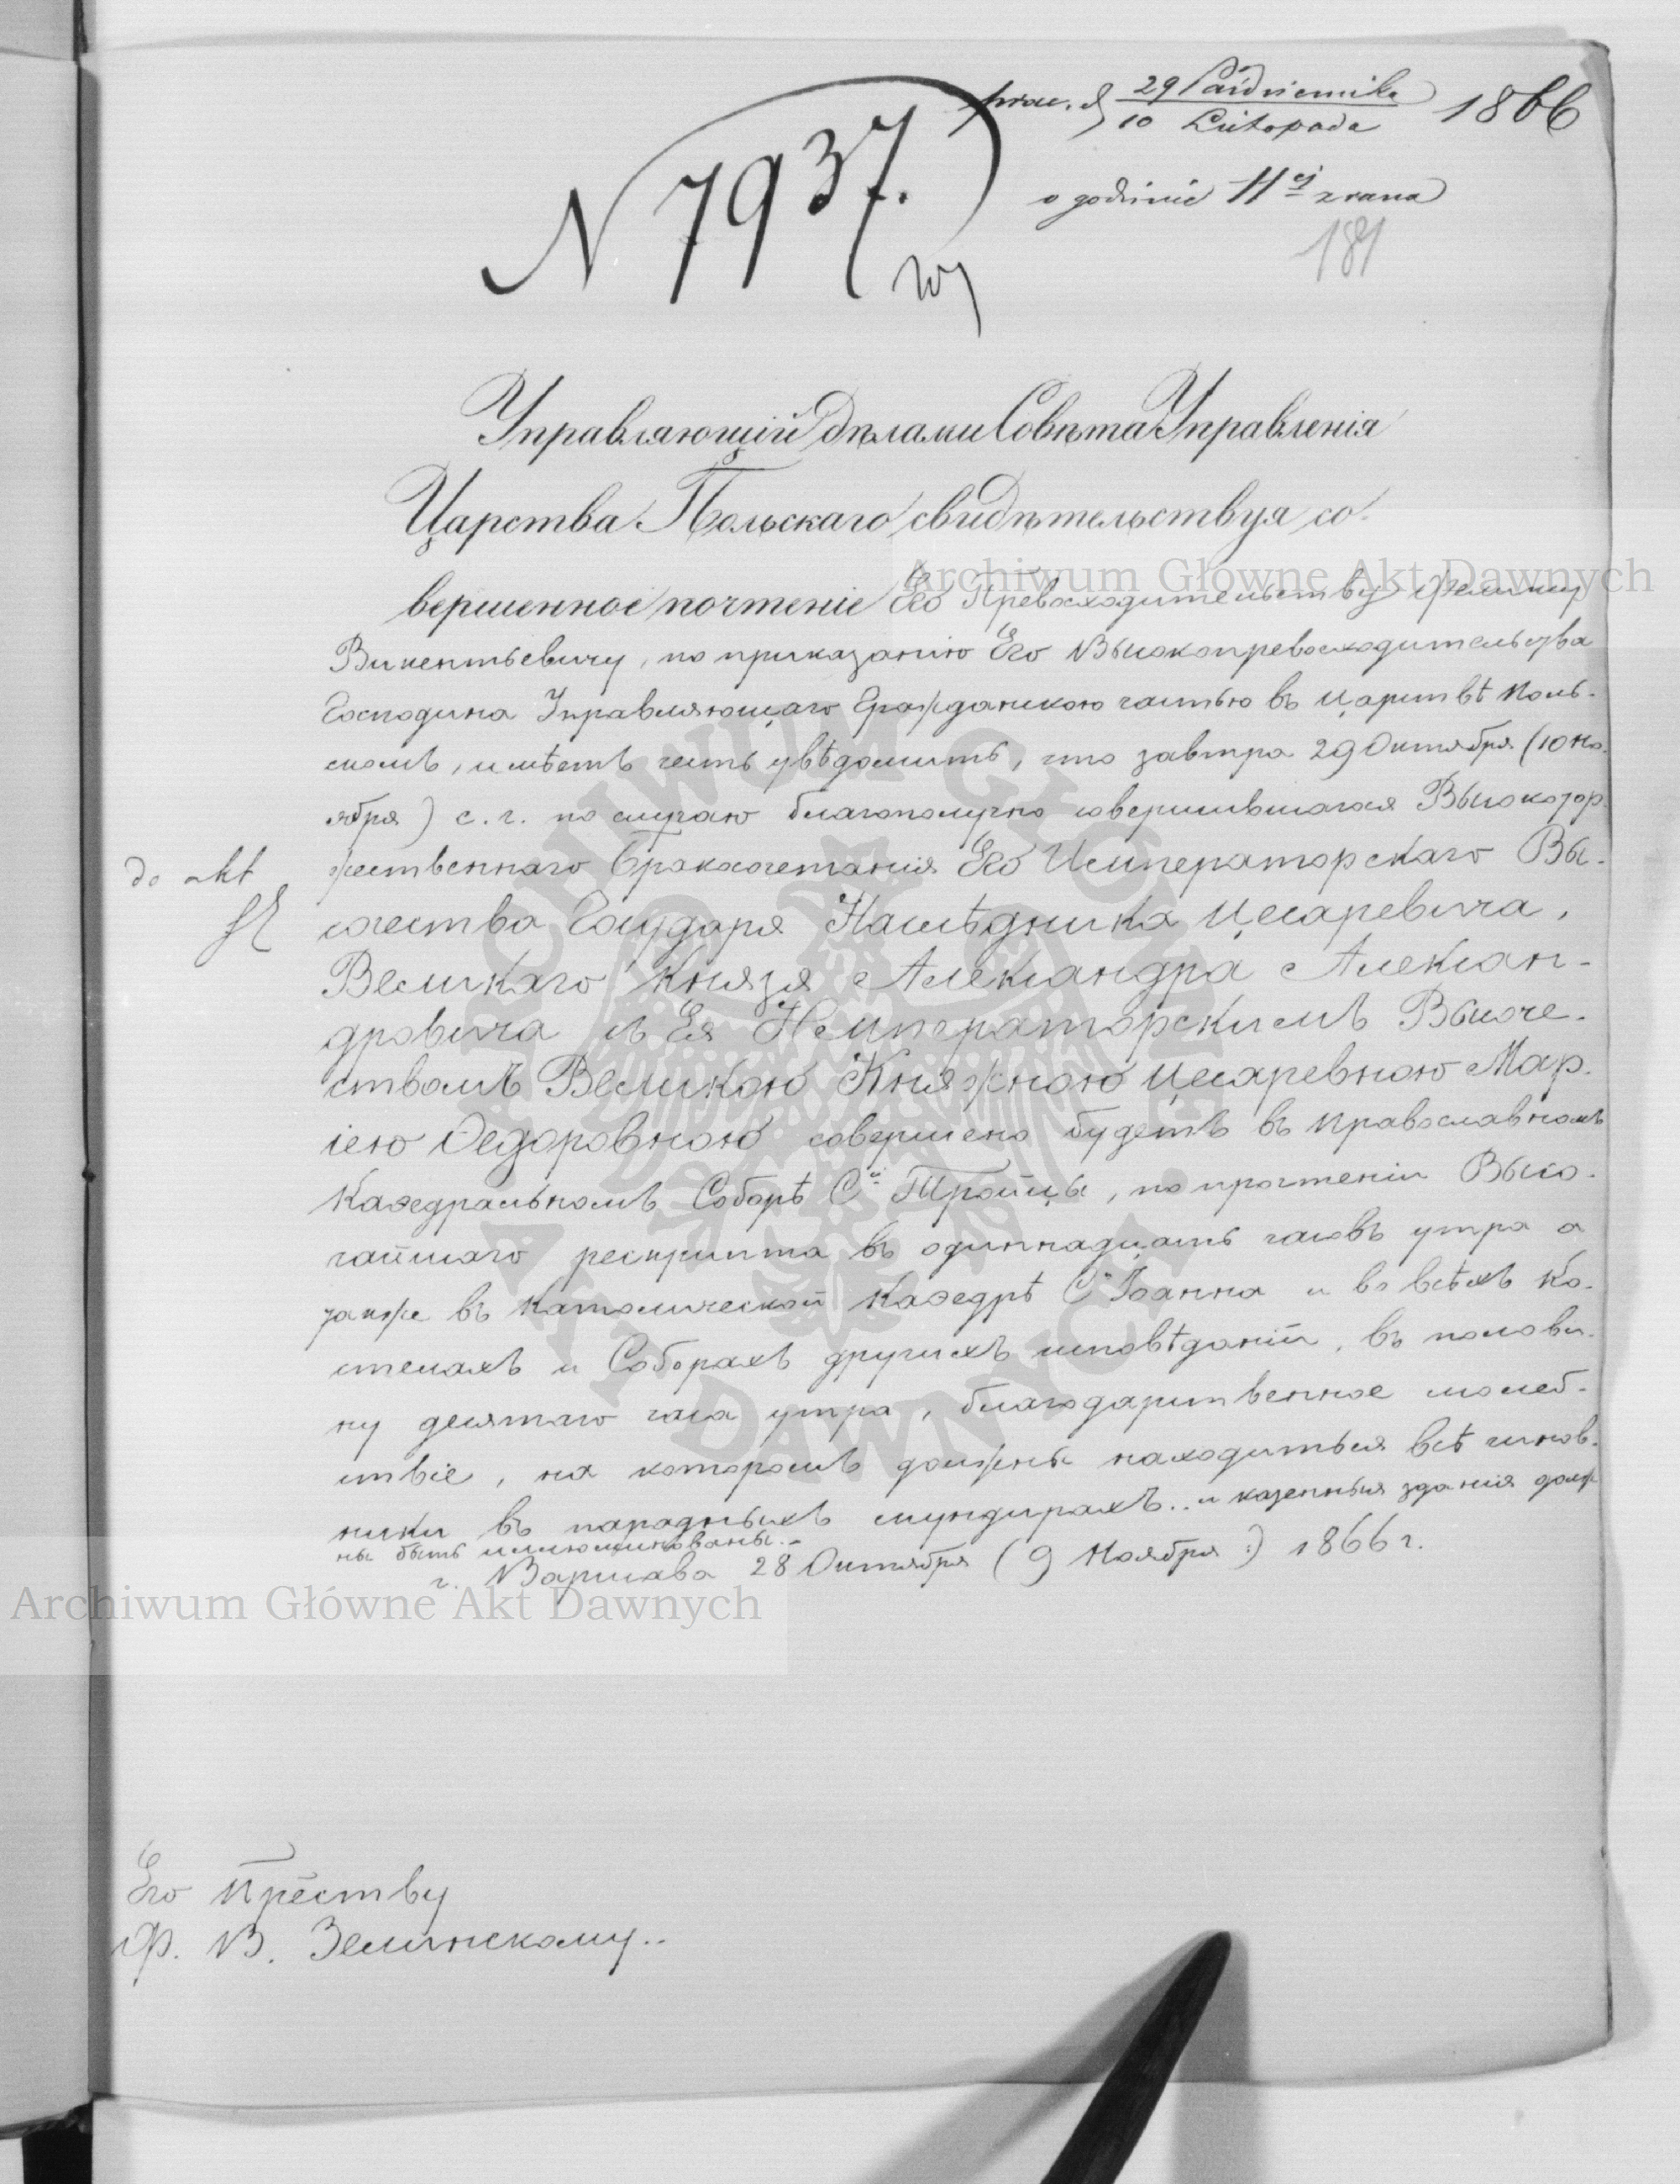 prae. d 29 Października 1866
10 Listopada
o godzinie 11ej z rana
N 7937.
181
Управляющій Дѣлами Совѣта Управленія
Царства Польскаго свидѣтельствуя со-
вершенное почтеніе Его Превосходительству Феликсу
Викентьевичу, по приказанію Его Высокопревосходительства
Господина Управляющаго Гражданскою частью въ Царствѣ Поль-
скомъ, имѣетъ честь увѣдомить, что завтра 29 Октября (10 Но-
ября) с. г. по случаю благополучно совершившагося Высокотор-
жественнаго Бракосочетанія Его Императорскаго Вы-
сочества Государя Наслѣдника Цесаревича,
Великаго Князя Александра Алексан-
дровича съ Ея Императорскимъ Высоче-
ствомъ Великою Княжною Цесаревною Мар-
іею Ѳедоровною совершено будетъ въ Православномъ
Каѳедральномъ Соборѣ Сй Тройцы, по прочтеніи Высо-
чайшаго рескрипта въ одиннадцать часовъ утра а
также въ Католической Каѳедрѣ Сго Іоанна и во всѣхъ Ко-
стелахъ и Соборахъ другихъ исповѣданій, въ полови-
ну десятаго часа утра, благодарственное молеб-
ствіе, на которомъ должны находиться всѣ чинов-
ники въ парадныхъ мундирахъ.. и казенныя зданія долж
ны быть иллюминованы..
г. Варшава 28 Октября (9 Ноября:) 1866 г.
до akt
Его Пр̄еству
Ф. В. Зелинскому..
Archiwum Główne Akt Dawnych
Archiwum Główne Akt Dawnych
ARCHIWUM GŁÓWNE AKT DAWNYCH